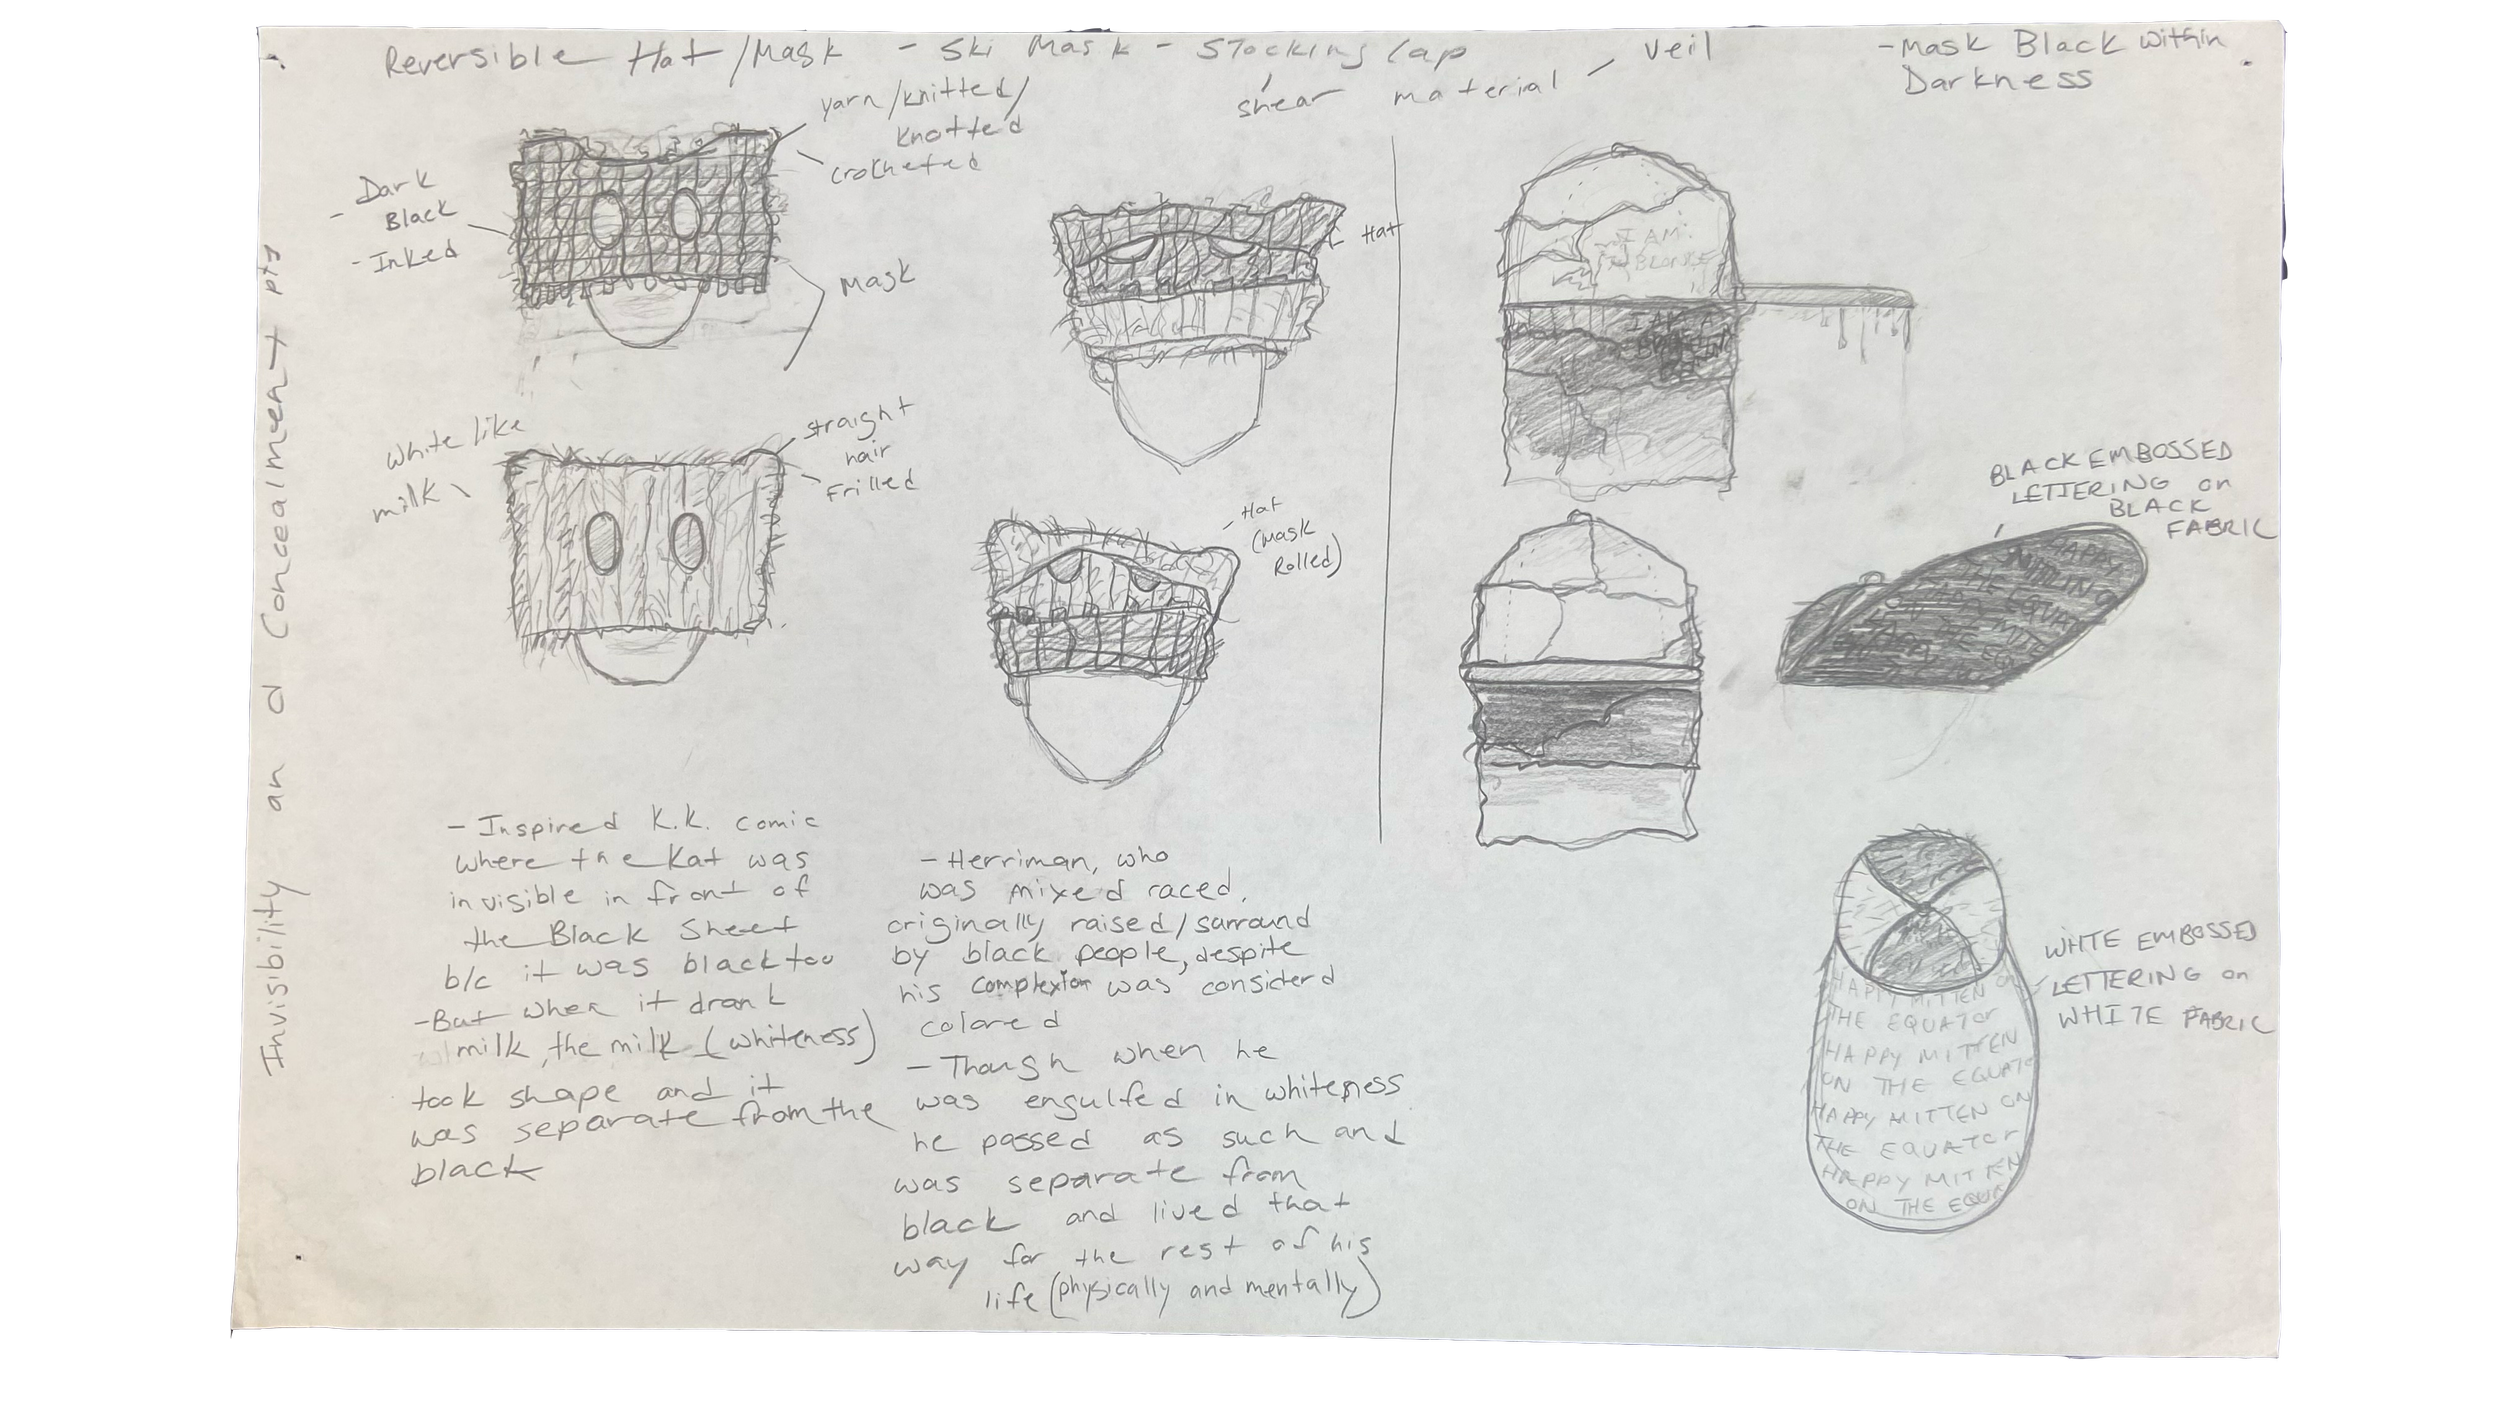 Reversible Hat/Mask - Ski Mask - Stocking Cap
shear material
veil
- Mask Black within
Darkness
yarn/knitted/
knotted
crocheted
- Dark
Black
- Inked
Mask
Hat
White like
milk
straight
hair
frilled
Hat
(mask
Rolled)
I AM
BLACK EMBOSSED
LETTERING on
BLACK
FABRIC
HAPPY
MITTEN ON
THE EQUAT
WHITE EMBOSSED
LETTERING on
WHITE FABRIC
HAPPY MITTEN ON
THE EQUATOR
HAPPY MITTEN
ON THE EQUATO
HAPPY MITTEN ON
THE EQUATOR
HAPPY MITTEN
ON THE EQUA
Invisibility and Concealment pt1
- Inspired K.K. comic
where the Kat was
invisible in front of
the Black Sheet
b/c it was black too
- But when it drank
milk, the milk (whiteness)
took shape and it
was separate from the
black
- Herriman, who
was mixed raced,
originally raised/surround
by black people, despite
his complexion was considerd
colored
- Though when he
was engulfed in whiteness
he passed as such and
was separate from
black and lived that
way for the rest of his
life (physically and mentally)